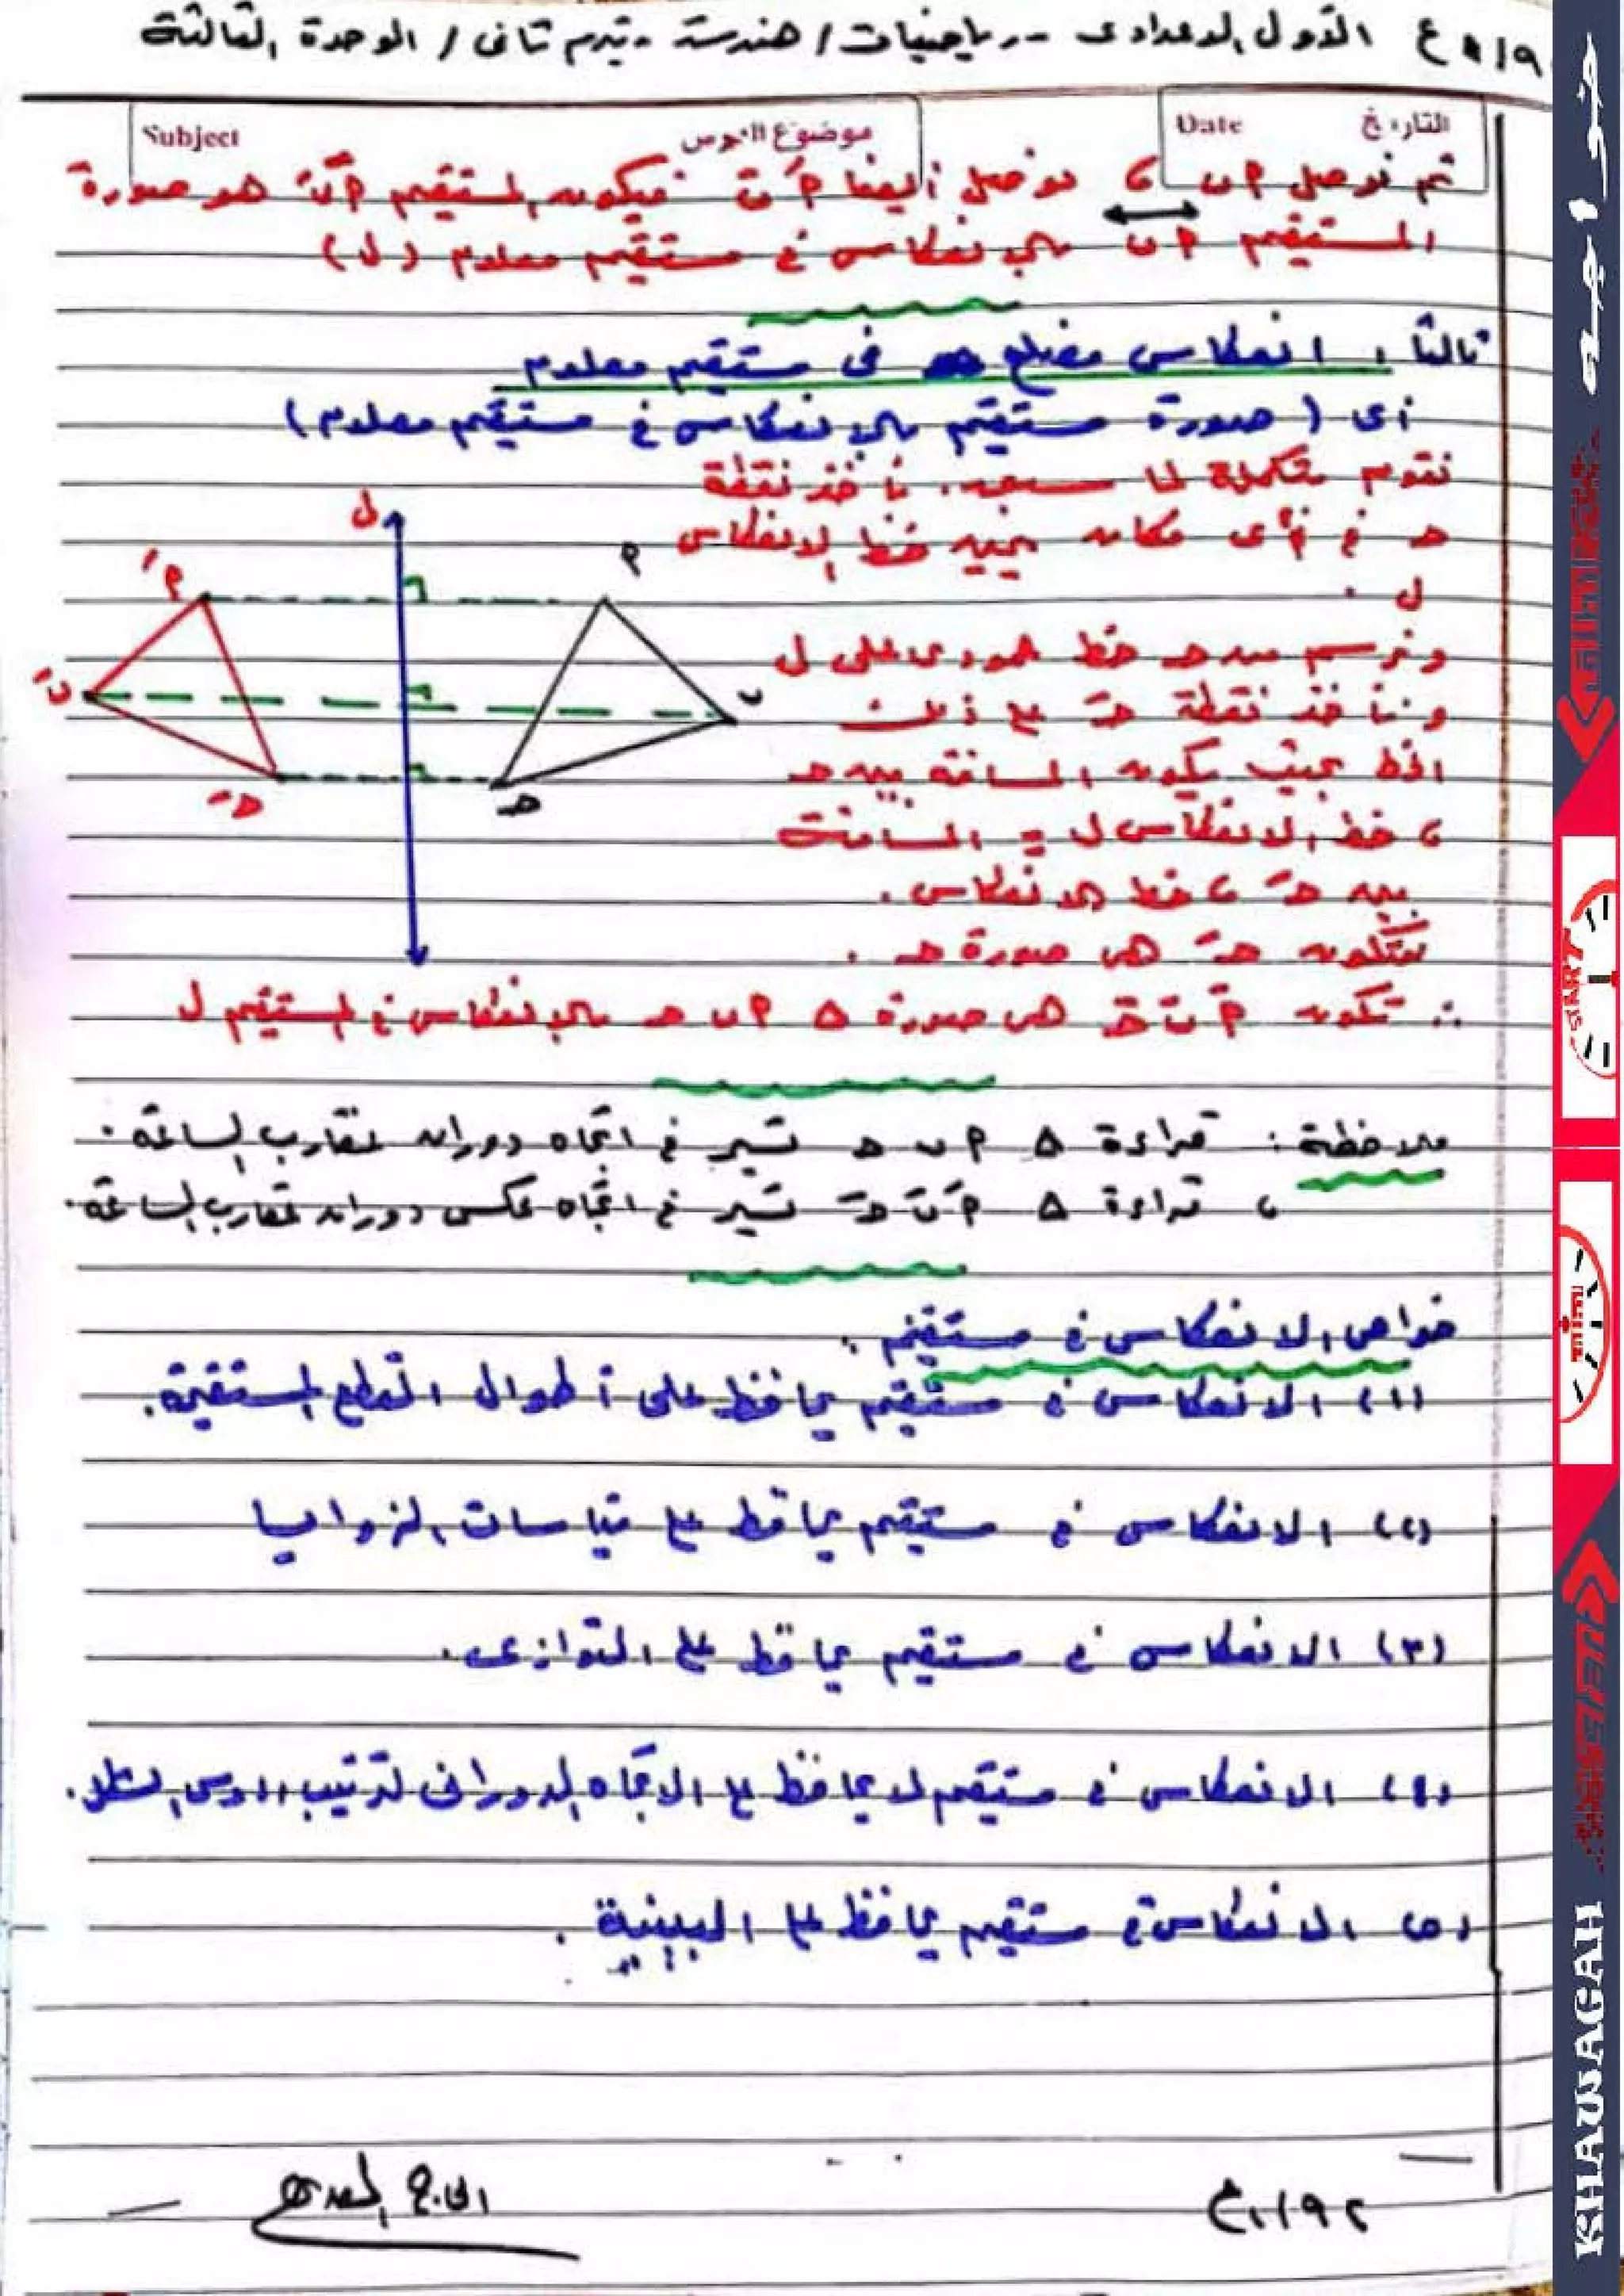 الأول الإعدادى -- رياضيات / هندسة - ترم ثانى / الوحدة الثالثة
التاريخ Date موضوع الدرس Subject
ثم نوصل P ب ، نوصل أيضا Ṕ ب́ فيكون المستقيم Ṕ ب́ هو صورة
المستقيم P ب بالإنعكاس فى مستقيم معلوم (ل)
ثالثاً : انعكاس مضلع فى مستقيم معلوم
أى ( صورة مستقيم بالإنعكاس فى مستقيم معلوم )
نقوم بتكملة لما سبق . نأخذ نقطة
حـ فى أى مكان يمين خط الإنعكاس
ل .
ونرسم من حـ خط عمودى على ل
ونأخذ نقطة حـَ على ذلك
الخط بحيث يكون المسافة بين حـ
، خط الإنعكاس ل = المسافة
بين حـَ ، خط الإنعكاس .
فتكون حـَ هى صورة حـ .
∴ تكون Ṕ ب́ حـَ هى صورة Δ P ب حـ بالإنعكاس فى المستقيم ل
ل
Ṕ
P
ب́
ب
حـَ
حـ
ملاحظة : قراءة Δ P ب حـ تسير فى اتجاه دوران عقارب الساعة .
، قراءة Δ Ṕ ب́ حـَ تسير فى اتجاه عكس دوران عقارب الساعة .
خواص الانعكاس فى مستقيم .
(١) الانعكاس فى مستقيم يحافظ على أطوال القطع المستقيمة .
(٢) الانعكاس فى مستقيم يحافظ على قياسات الزوايا
(٣) الانعكاس فى مستقيم يحافظ على التوازى .
(٤) الانعكاس فى مستقيم لا يحافظ على الاتجاه الدورانى لترتيب رؤوس الشكل .
(٥) الانعكاس فى مستقيم يحافظ على البينية .
خواجه
START
KHAWAGAH